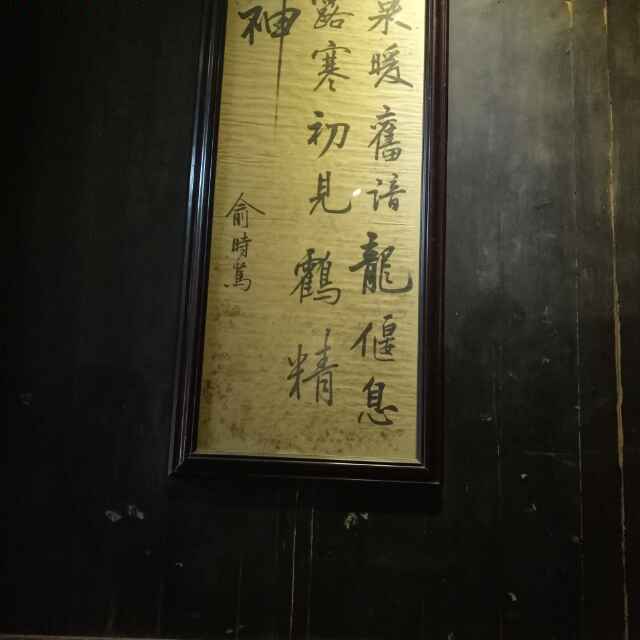 暖舊諳龍偃息
露寒初見鶴精
神
俞時篤